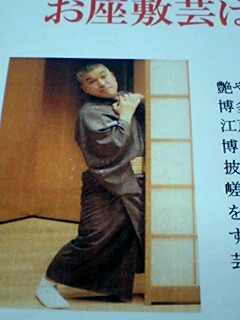 お座敷芸は
艶や
博多
江
博
披
嵯
を
す
芸